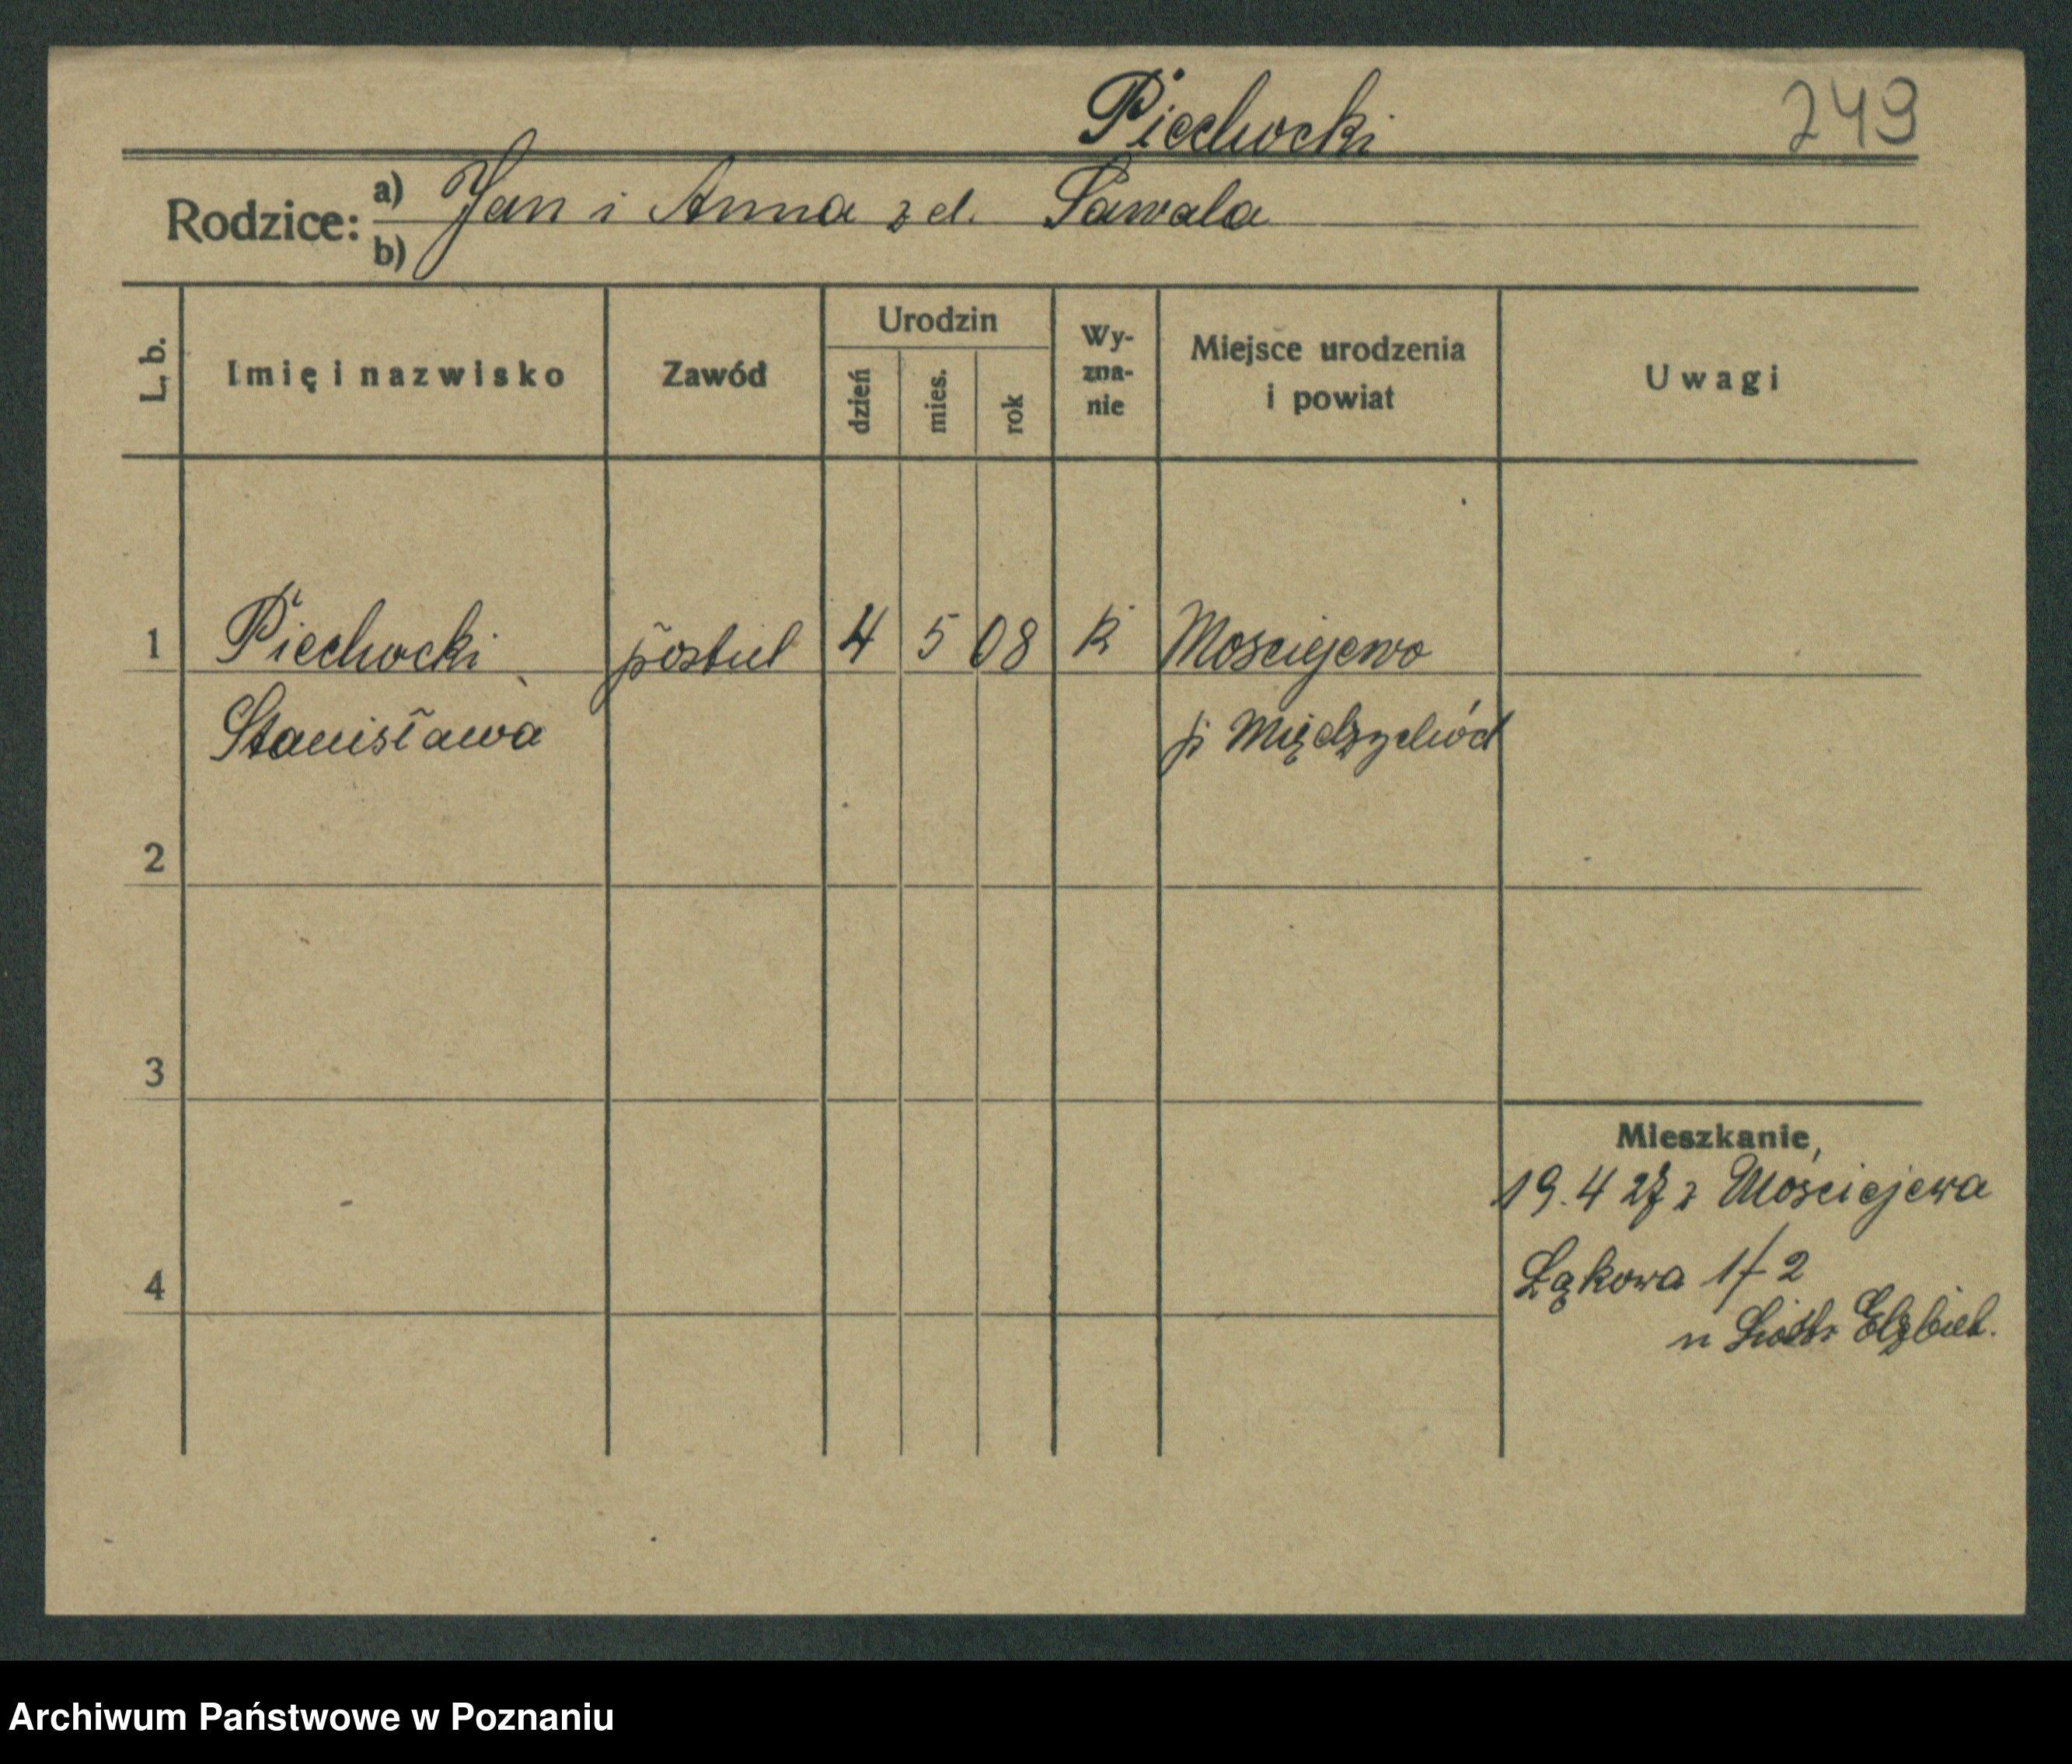 Piechocki 249
Rodzice: a) Jan i Anna z d. Sawala
b)
L. b. Imię i nazwisko Zawód Urodzin dzień mies. rok Wy-zna-nie Miejsce urodzenia i powiat Uwagi
1 Piechocki 4 5 08 k Mosciejewo
Stanisława p Międzychód
2
3
Mieszkanie
19.4 27 z Mościejewa
4 Łąkowa 17 2
u Sióstr Elżbiet.
Archiwum Państwowe w Poznaniu